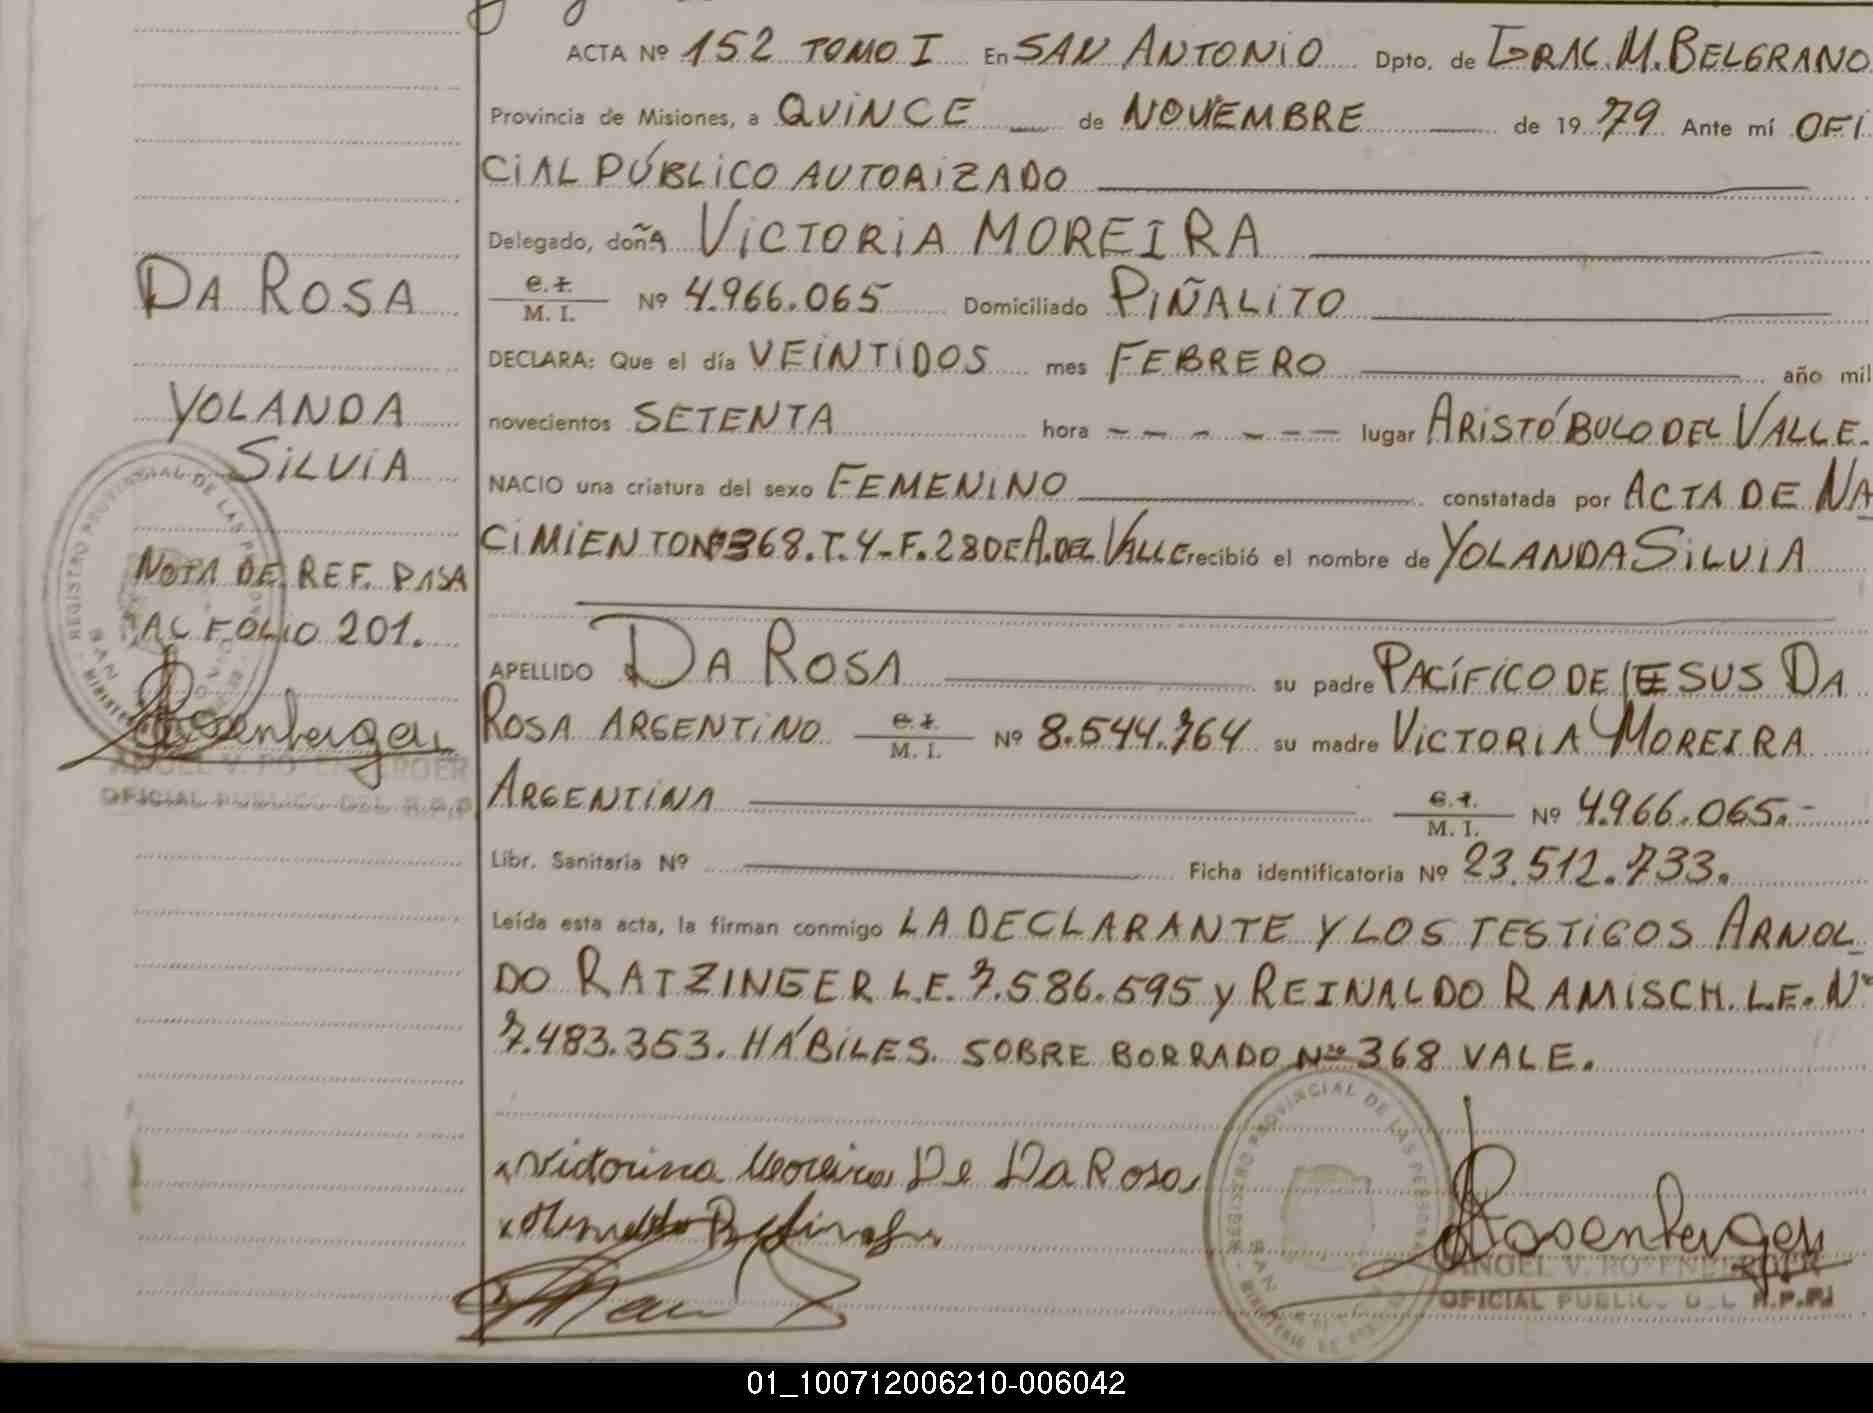 ACTA Nº 152 TOMO I En SAN ANTONIO Dpto. de GRAL. M. BELGRANO
Provincia de Misiones, a QUINCE de NOVIEMBRE de 1979 Ante mí OFI
CIAL PÚBLICO AUTORIZADO
Delegado, doñA VICTORIA MOREIRA
DA ROSA
e.I.
M. I. Nº 4.966.065 Domiciliado PIÑALITO
DECLARA: Que el día VEINTIDOS mes FEBRERO año mil
YOLANDA
novecientos SETENTA hora - - - - - - lugar ARISTÓBULO DEL VALLE.
SILVIA
NACIO una criatura del sexo FEMENINO constatada por ACTA DE NA
CIMIENTO Nº 368. T. 4 - F. 28 DE A. DEL VALLE recibió el nombre de YOLANDA SILVIA
NOTA DE REF. PASA
AL FOLIO 201.
APELLIDO DA ROSA su padre PACÍFICO DE JESUS DA
ROSA ARGENTINO e.I.
M. I. Nº 8.544.764 su madre VICTORIA MOREIRA
Rosenberger
ANGEL V. ROSENBERGER
OFICIAL PUBLICO DEL R.P.P.
ARGENTINA e.I.
M. I. Nº 4.966.065.-
Libr. Sanitaria Nº Ficha identificatoria Nº 23.512.733.
Leída esta acta, la firman conmigo LA DECLARANTE Y LOS TESTIGOS ARNOL
DO RATZINGER L.E. 7.586.595 y REINALDO RAMISCH. L.E. Nº
7.483.353. HÁBILES. SOBRE BORRADO Nº 368 VALE.
REGISTRO PROVINCIAL DE LAS PERSONAS
Victorina Moreira De Da Rosa
Rosenberger
ANGEL V. ROSENBERGER
OFICIAL PUBLICO DEL R.P.P.
01_100712006210-006042